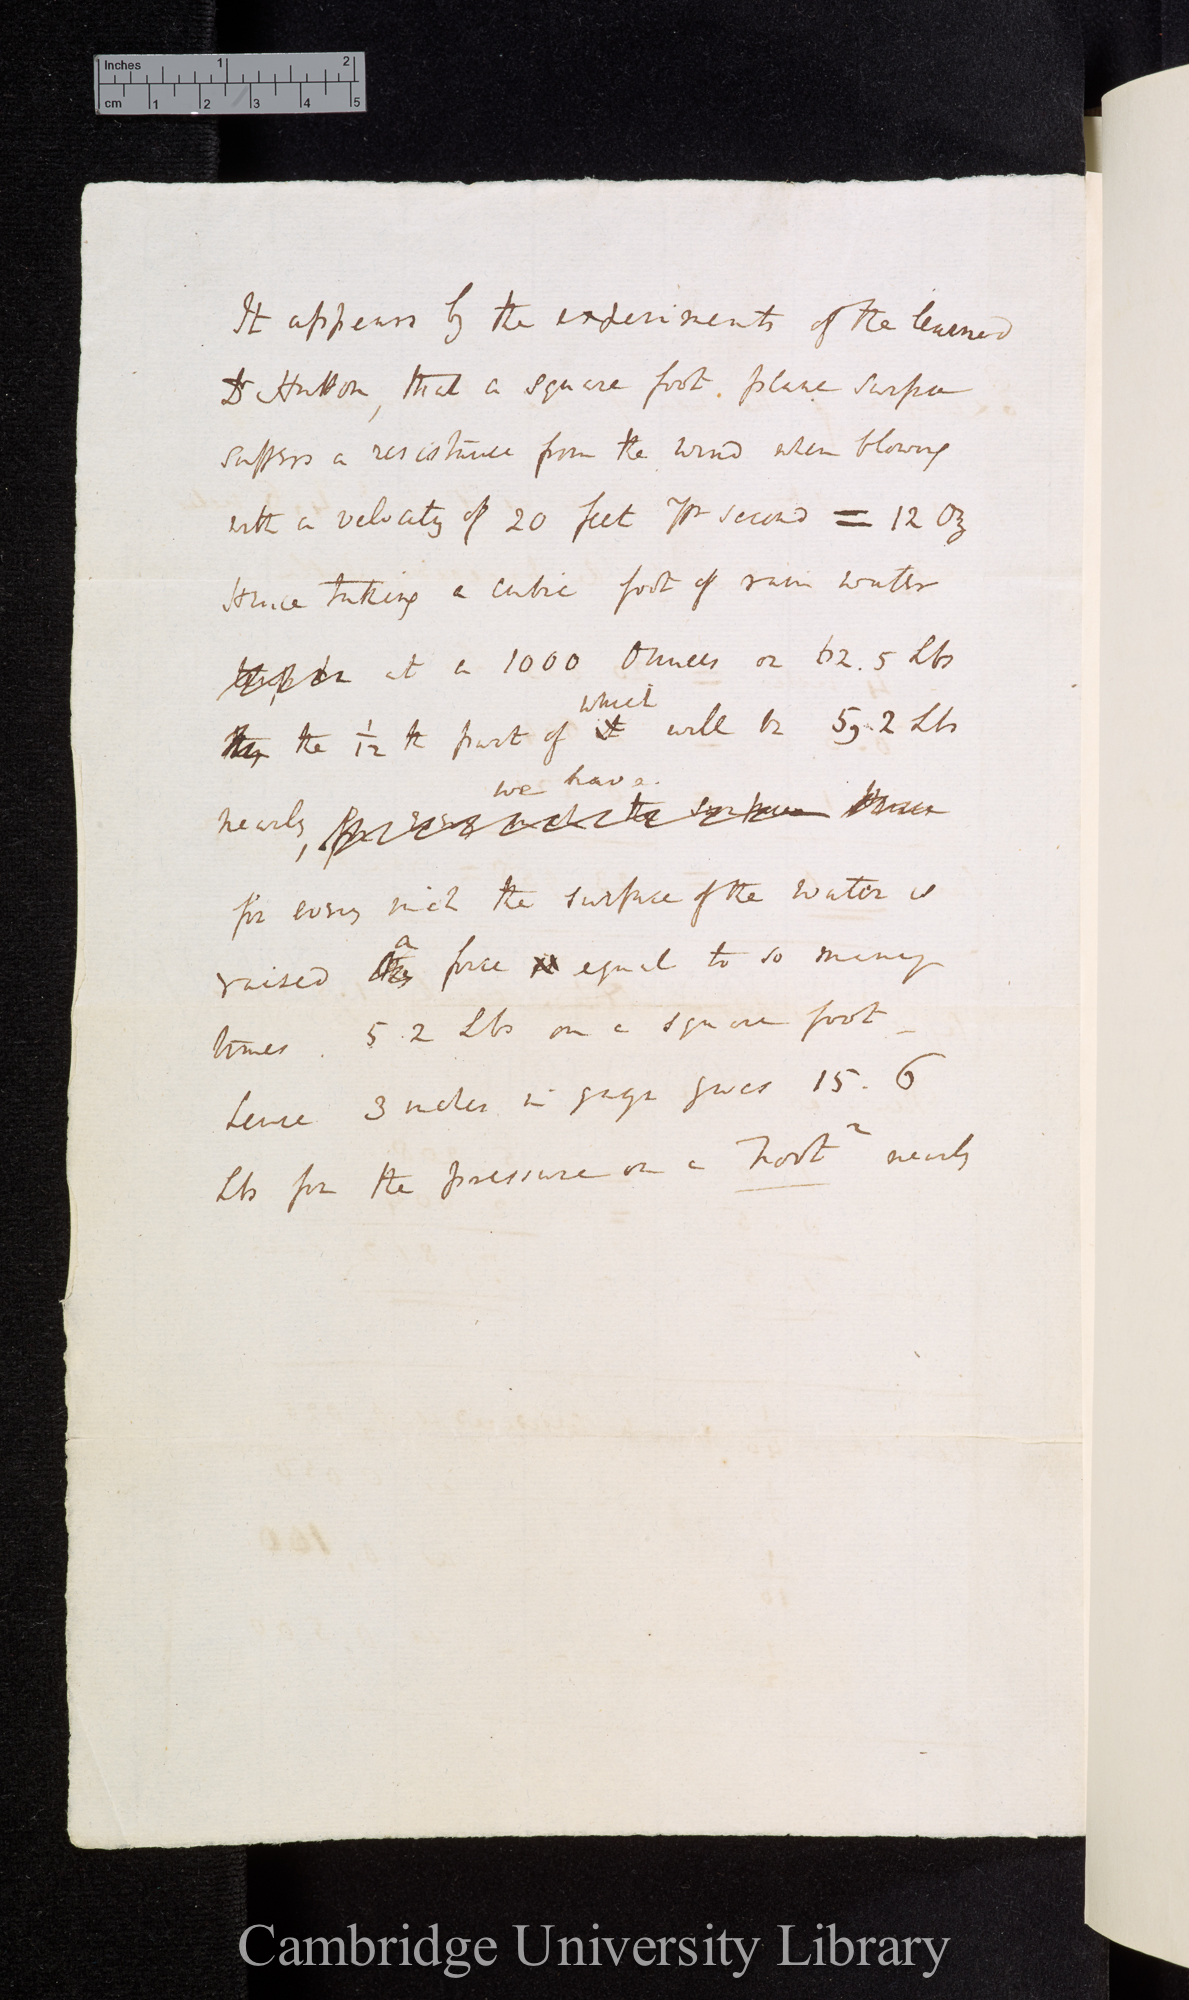 Inches 1 2
cm 1 2 3 4 5
It appears by the experiments of the learned
Dr Hutton, that a square foot. plane surface
suffers a resistance from the wind when blowing
with a velocity of 20 feet pr second = 12 Oz
Hence taking a cubic foot of rain water
at a 1000 Ounces or 62.5 Lbs
which
the 1/12 th part of it will be 5,2 Lbs
we have
nearly, for every inch the surface
for every inch the surface of the water is
a
raised the force is equal to so many
times. 5.2 Lbs on a square foot_
hence 3 inches in gage gives 15.6
Lbs for the pressure on a Foot² nearly
Cambridge University Library